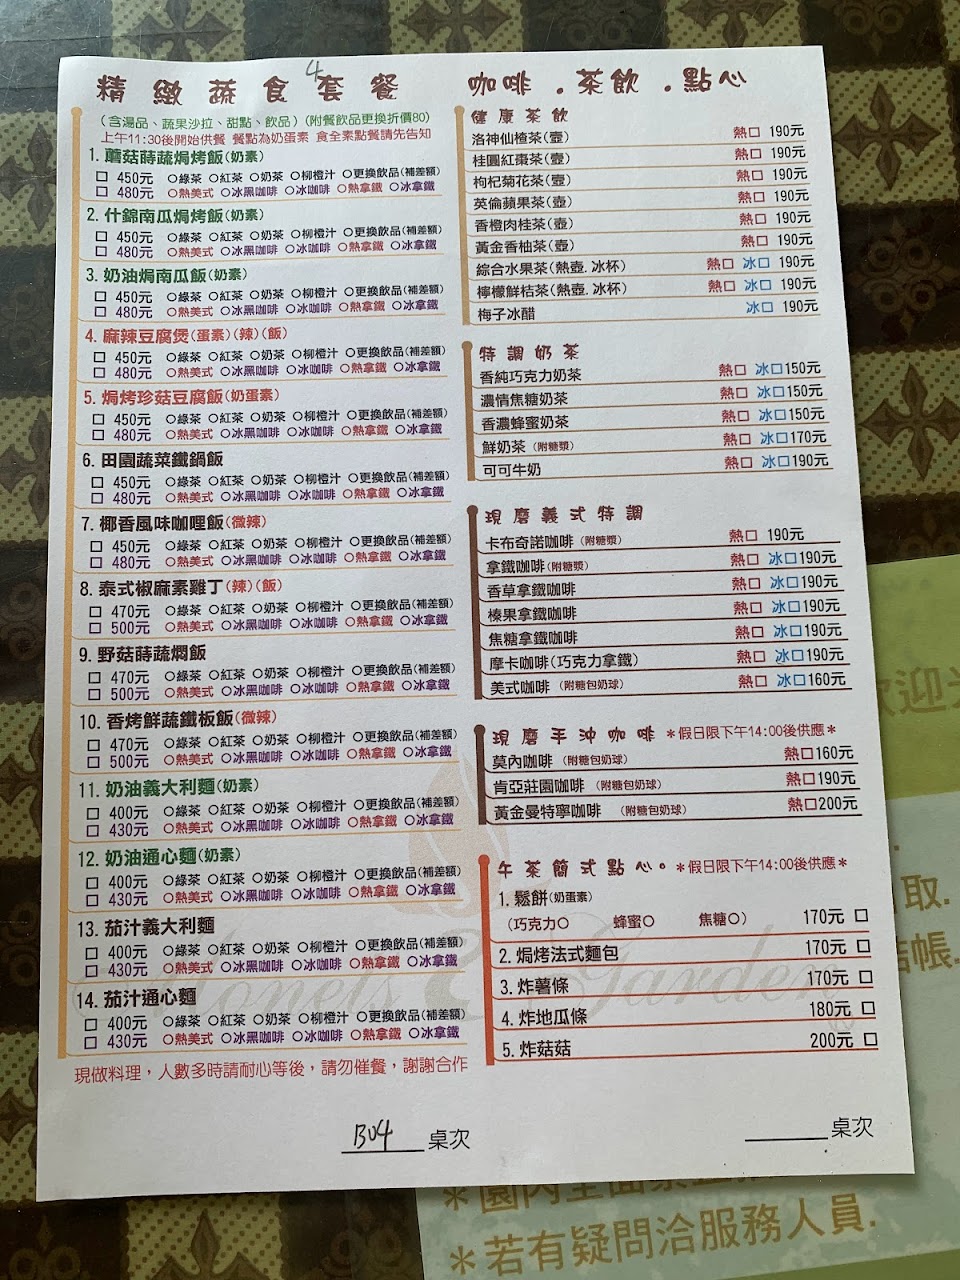 精緻蔬食套餐
4
(含湯品、蔬果沙拉、甜點、飲品)(附餐飲品更換折價80)
上午11:30後開始供餐 餐點為奶蛋素 食全素點餐請先告知
1. 蘑菇蒔蔬焗烤飯(奶素)
□ 450元 ○綠茶 ○紅茶 ○奶茶 ○柳橙汁 ○更換飲品(補差額)
□ 480元 ○熱美式 ○冰黑咖啡 ○冰咖啡 ○熱拿鐵 ○冰拿鐵
2. 什錦南瓜焗烤飯(奶素)
□ 450元 ○綠茶 ○紅茶 ○奶茶 ○柳橙汁 ○更換飲品(補差額)
□ 480元 ○熱美式 ○冰黑咖啡 ○冰咖啡 ○熱拿鐵 ○冰拿鐵
3. 奶油焗南瓜飯(奶素)
□ 450元 ○綠茶 ○紅茶 ○奶茶 ○柳橙汁 ○更換飲品(補差額)
□ 480元 ○熱美式 ○冰黑咖啡 ○冰咖啡 ○熱拿鐵 ○冰拿鐵
4. 麻辣豆腐煲(蛋素)(辣)(飯)
□ 450元 ○綠茶 ○紅茶 ○奶茶 ○柳橙汁 ○更換飲品(補差額)
□ 480元 ○熱美式 ○冰黑咖啡 ○冰咖啡 ○熱拿鐵 ○冰拿鐵
5. 焗烤珍菇豆腐飯(奶蛋素)
□ 450元 ○綠茶 ○紅茶 ○奶茶 ○柳橙汁 ○更換飲品(補差額)
□ 480元 ○熱美式 ○冰黑咖啡 ○冰咖啡 ○熱拿鐵 ○冰拿鐵
6. 田園蔬菜鐵鍋飯
□ 450元 ○綠茶 ○紅茶 ○奶茶 ○柳橙汁 ○更換飲品(補差額)
□ 480元 ○熱美式 ○冰黑咖啡 ○冰咖啡 ○熱拿鐵 ○冰拿鐵
7. 椰香風味咖哩飯(微辣)
□ 450元 ○綠茶 ○紅茶 ○奶茶 ○柳橙汁 ○更換飲品(補差額)
□ 480元 ○熱美式 ○冰黑咖啡 ○冰咖啡 ○熱拿鐵 ○冰拿鐵
8. 泰式椒麻素雞丁(辣)(飯)
□ 470元 ○綠茶 ○紅茶 ○奶茶 ○柳橙汁 ○更換飲品(補差額)
□ 500元 ○熱美式 ○冰黑咖啡 ○冰咖啡 ○熱拿鐵 ○冰拿鐵
9. 野菇蒔蔬燜飯
□ 470元 ○綠茶 ○紅茶 ○奶茶 ○柳橙汁 ○更換飲品(補差額)
□ 500元 ○熱美式 ○冰黑咖啡 ○冰咖啡 ○熱拿鐵 ○冰拿鐵
10. 香烤鮮蔬鐵板飯(微辣)
□ 470元 ○綠茶 ○紅茶 ○奶茶 ○柳橙汁 ○更換飲品(補差額)
□ 500元 ○熱美式 ○冰黑咖啡 ○冰咖啡 ○熱拿鐵 ○冰拿鐵
11. 奶油義大利麵(奶素)
□ 400元 ○綠茶 ○紅茶 ○奶茶 ○柳橙汁 ○更換飲品(補差額)
□ 430元 ○熱美式 ○冰黑咖啡 ○冰咖啡 ○熱拿鐵 ○冰拿鐵
12. 奶油通心麵(奶素)
□ 400元 ○綠茶 ○紅茶 ○奶茶 ○柳橙汁 ○更換飲品(補差額)
□ 430元 ○熱美式 ○冰黑咖啡 ○冰咖啡 ○熱拿鐵 ○冰拿鐵
13. 茄汁義大利麵
□ 400元 ○綠茶 ○紅茶 ○奶茶 ○柳橙汁 ○更換飲品(補差額)
□ 430元 ○熱美式 ○冰黑咖啡 ○冰咖啡 ○熱拿鐵 ○冰拿鐵
14. 茄汁通心麵
□ 400元 ○綠茶 ○紅茶 ○奶茶 ○柳橙汁 ○更換飲品(補差額)
□ 430元 ○熱美式 ○冰黑咖啡 ○冰咖啡 ○熱拿鐵 ○冰拿鐵
現做料理，人數多時請耐心等後，請勿催餐，謝謝合作
B04 桌次
咖啡．茶飲．點心
健康茶飲
洛神仙楂茶(壹) 熱□ 190元
桂圓紅棗茶(壹) 熱□ 190元
枸杞菊花茶(壹) 熱□ 190元
英倫蘋果茶(壺) 熱□ 190元
香橙肉桂茶(壺) 熱□ 190元
黃金香柚茶(壺) 熱□ 190元
綜合水果茶(熱壺.冰杯) 熱□ 冰□ 190元
檸檬鮮桔茶(熱壺.冰杯) 熱□ 冰□ 190元
梅子冰醋 冰□ 190元
特調奶茶
香純巧克力奶茶 熱□ 冰□150元
濃情焦糖奶茶 熱□ 冰□150元
香濃蜂蜜奶茶 熱□ 冰□150元
鮮奶茶 (附糖漿) 熱□ 冰□170元
可可牛奶 熱□ 冰□190元
現磨義式特調
卡布奇諾咖啡 (附糖漿) 熱□ 190元
拿鐵咖啡(附糖漿) 熱□ 冰□190元
香草拿鐵咖啡 熱□ 冰□190元
榛果拿鐵咖啡 熱□ 冰□190元
焦糖拿鐵咖啡 熱□ 冰□190元
摩卡咖啡(巧克力拿鐵) 熱□ 冰□190元
美式咖啡 (附糖包奶球) 熱□ 冰□160元
現磨手沖咖啡 *假日限下午14:00後供應*
莫內咖啡 (附糖包奶球) 熱□160元
肯亞莊園咖啡 (附糖包奶球) 熱□190元
黃金曼特寧咖啡 (附糖包奶球) 熱□200元
午茶簡式點心。*假日限下午14:00後供應*
1. 鬆餅(奶蛋素)
(巧克力○ 蜂蜜○ 焦糖○) 170元 □
2. 焗烤法式麵包 170元 □
3. 炸薯條 170元 □
4. 炸地瓜條 180元 □
5. 炸菇菇 200元 □
桌次
Monets Garden
歡迎
取.
帳.
*若有疑問洽服務人員.